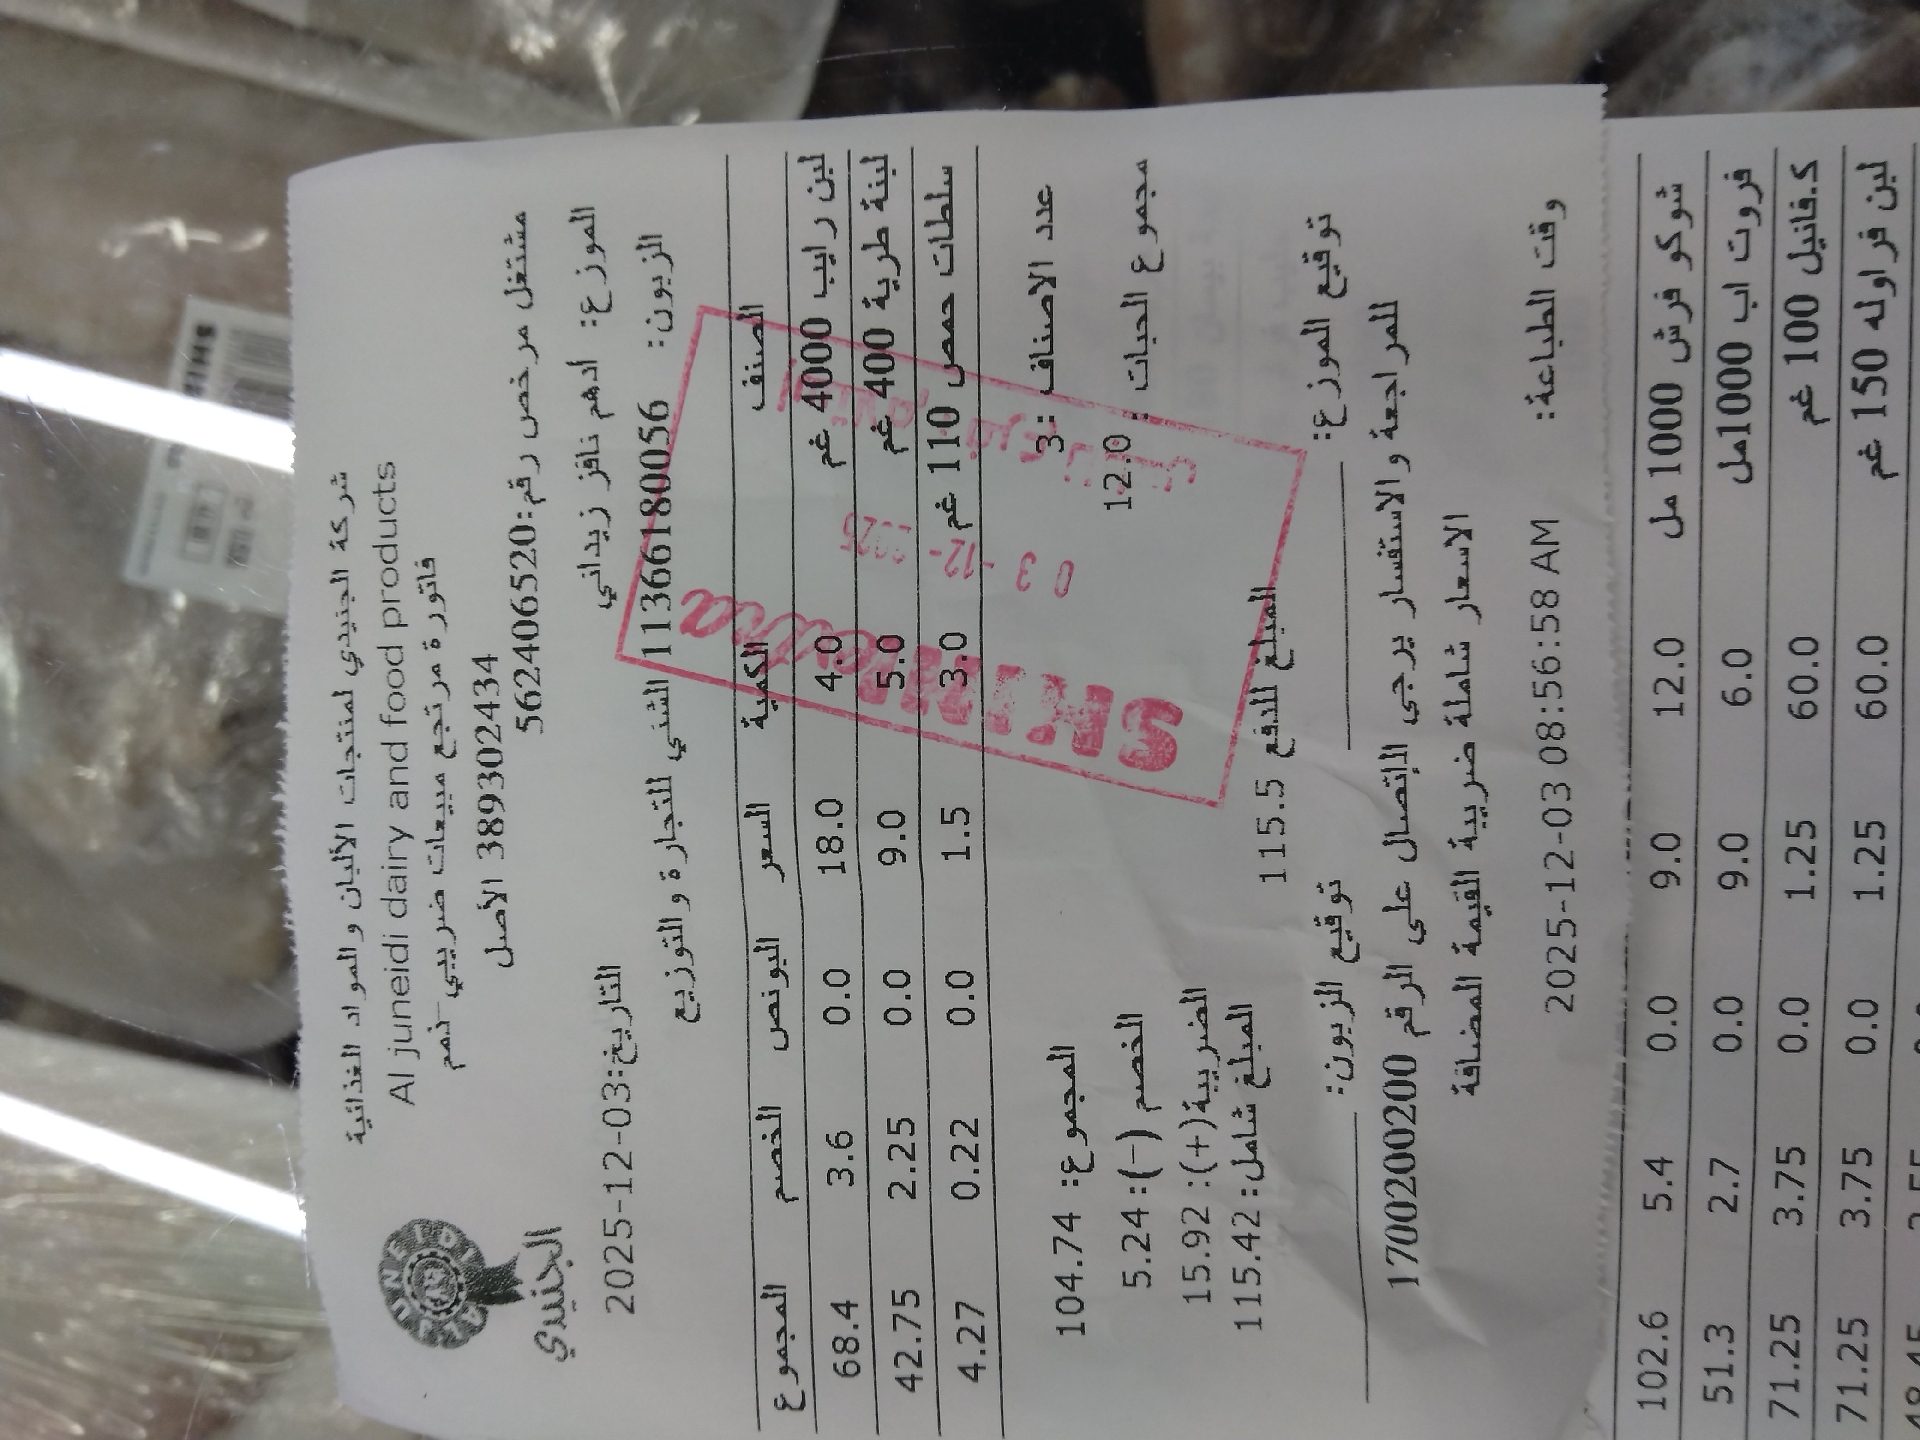 شركة الجنيدي لمنتجات الألبان والمواد الغذائية
Al juneidi dairy and food products
فاتورة مرتجع مبيعات ضريبي-ذمم
389302434 الأصل
مشتغل مرخص رقم:562406520
JUNEIDI
الجنيدي
الموزع: أدهم نافز زيداني
التاريخ:2025-12-03
الزبون: 1136618005‎6 الشني للتجارة والتوزيع
الصنف الكمية السعر البونص الخصم المجموع
لبن رايب 4000 غم 4.0 18.0 0.0 3.6 68.4
لبنة طرية 400 غم 5.0 9.0 0.0 2.25 42.75
سلطات حمص 110 غم 3.0 1.5 0.0 0.22 4.27
عدد الاصناف :3
المجموع: 104.74
مجموع الحبات : 12.0
الخصم (-): 5.24
الضريبة(+): 15.92
المبلغ شامل: 115.42
المبلغ للدفع 115.5
توقيع الموزع:
توقيع الزبون:
للمراجعة والاستفسار يرجى الإتصال على الرقم 1700200200
الاسعار شاملة ضريبة القيمة المضافة
وقت الطباعة: 2025-12-03 08:56:58 AM
03 -12- 2025
شوكو فرش 1000 مل 12.0 9.0 0.0 5.4 102.6
فروت اب 1000مل 6.0 9.0 0.0 2.7 51.3
ك.فانيل 100 غم 60.0 1.25 0.0 3.75 71.25
لبن فراوله 150 غم 60.0 1.25 0.0 3.75 71.25